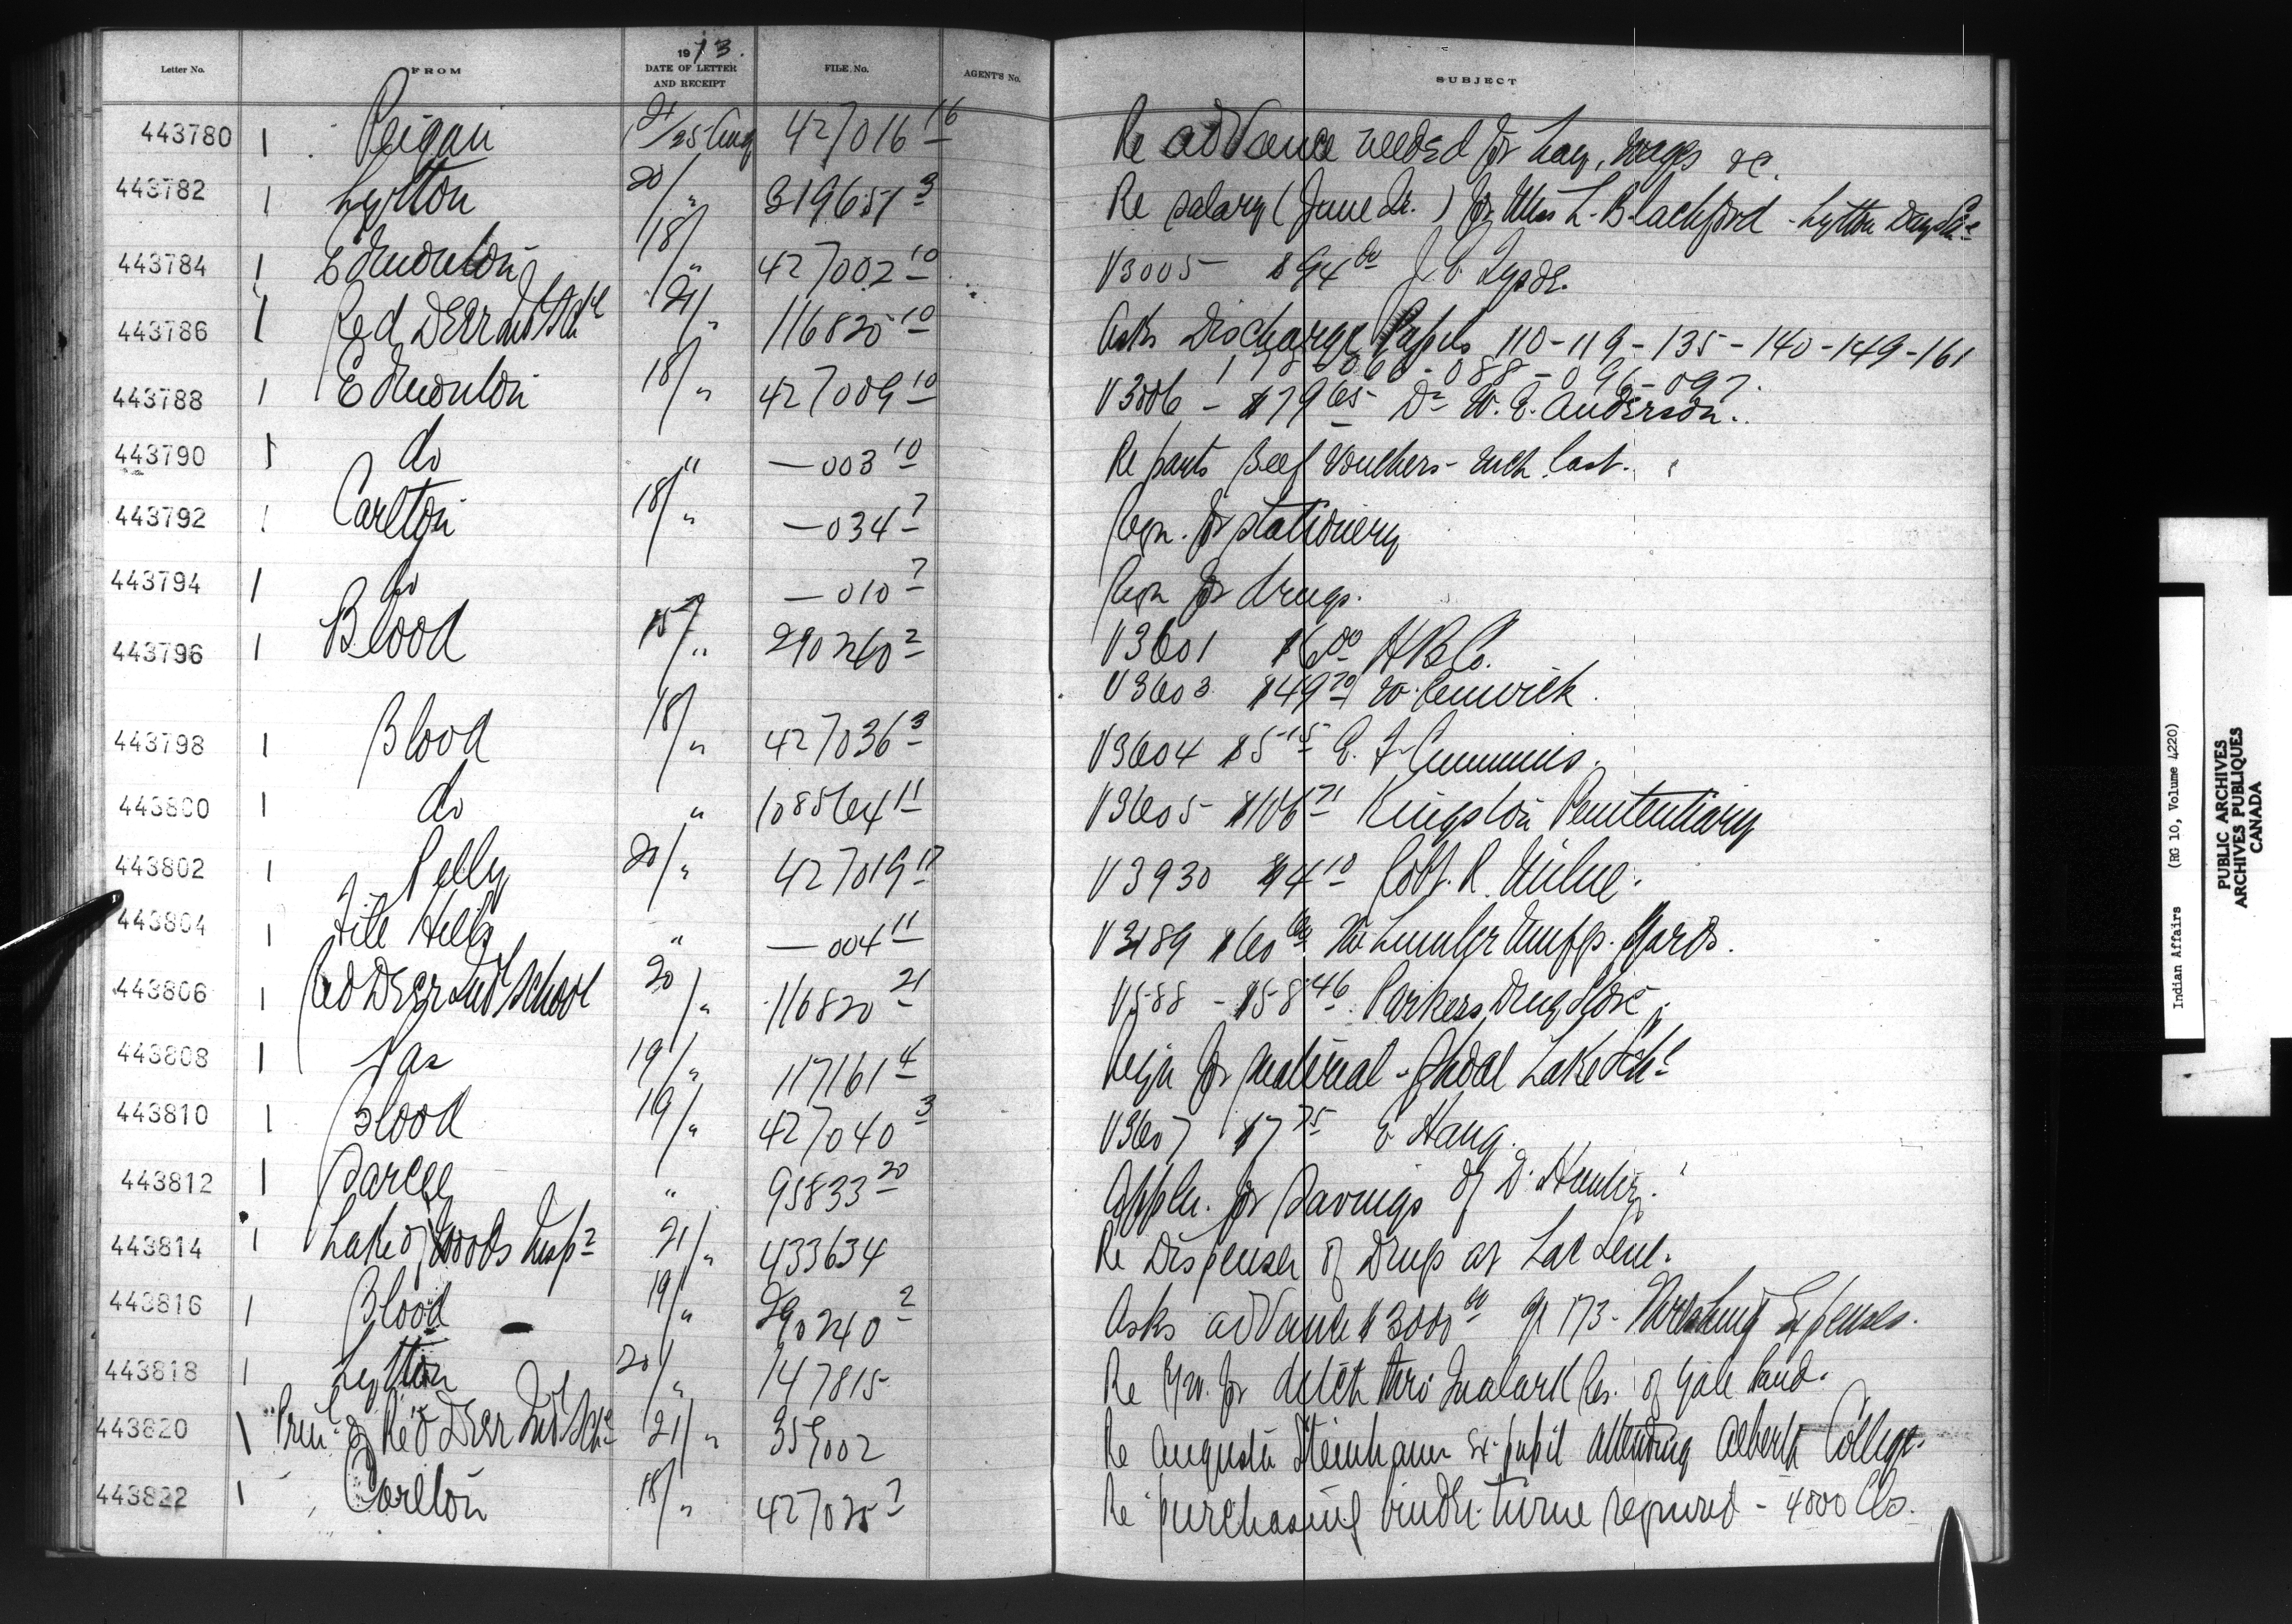 Letter No. FROM 1913. DATE OF LETTER AND RECEIPT FILE No. AGENT'S No. SUBJECT
443780 1 Peigan 21/25 Aug 427016 16 Re advance needed for hay, wages &c.
443782 1 Lytton 20/ " 319651 3 Re salary (June Qr.) for Miss L. Blachford - Lytton Day Sch
443784 1 Edmonton 18/ " 427002 10 V3005 $94 00 J. C.
443786 1 Red Deer Ind Schl 21/ " 116820 10 Asks Discharge Papers 110-119-135-140-149-161
088-096-097.
443788 1 Edmonton 18/ " 427009 10 V3006 - $79 65 Dr W. E. Anderson.
443790 1 do " —003 10 Re parts Beef Vouchers
443792 1 Carlton 18/ " —034 7 Reqn. for Stationery
443794 1 do —010 7 Reqn for drugs.
443796 1 Blood 15/ " 290240 2 V3601 $6 00 HBCo.
V3603 $49 70 W. Renwick.
443798 1 Blood 18/ " 427036 3 V3604 $5 15 E. F. Cummins.
443800 1 do " 108564 11 V3605 $106 71 Kingston Penitentiary
443802 1 Pelly 20/ " 427019 17 V3930 $4 10 Robt. R. Milne.
443804 1 File Hills " —004 11 V3189 $60 00 Lumber Yards.
443806 1 Red Deer Ind School 20/ " 116820 21 V588 - $58 46 Parkers Drug Store
443808 1 Pas 19/ " 117161 4 Reqn for material - Shoal Lake Schl
443810 1 Blood 19/ " 427040 3 V3607 $7 75 E Haug.
443812 1 Sarcee " 95833 20 Appln. for Savings of D. Hunter.
443814 1 Lake of Woods Insp 21/ " 433634 Re Dispenser of Drugs at Lac Seul.
443816 1 Blood 19/ " 290240 2 Asks advance $3000 00 173 - Threshing Expenses.
443818 1 Lytton 20/ " 147815 Re R/W. for ditch thro Res. of Yale Band.
443820 1 Prin. of Red Deer Ind Sch 21/ " 359002 Re Augusta Steinhauer ex-pupil attending Alberta College.
443822 1 Carlton 18/ " 427025 7 Re purchasing binder twine required - 4000 lbs.
Indian Affairs (RG 10, Volume 4220)
PUBLIC ARCHIVES
ARCHIVES PUBLIQUES
CANADA